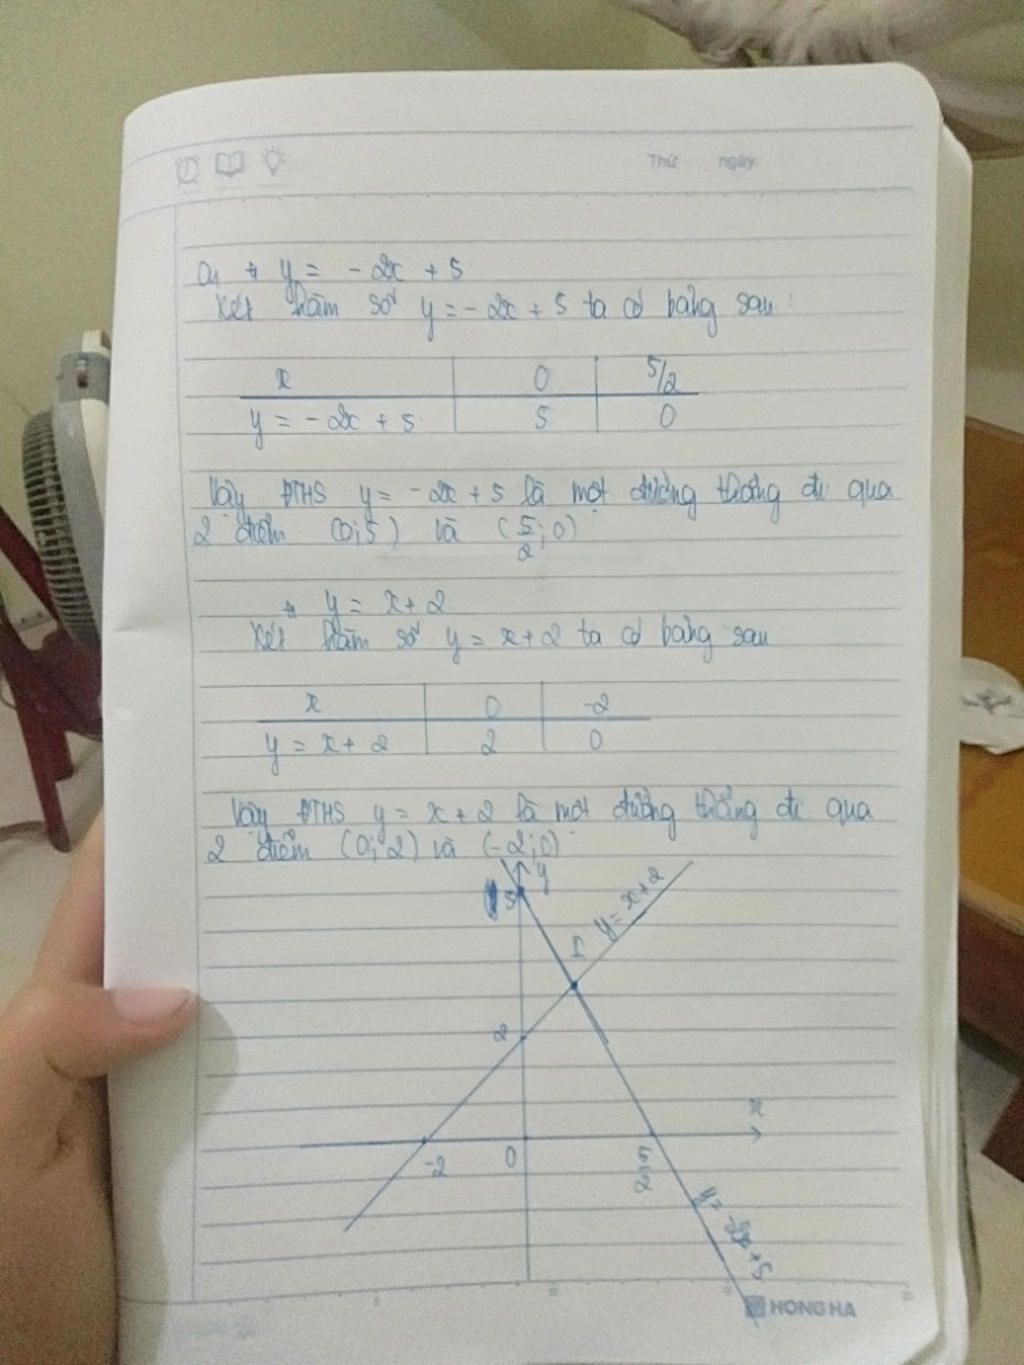 Thứ ngày
a, + y = - 2x + 5
Xét hàm số y = - 2x + 5 ta có bảng sau :
x 0 5/2
y = - 2x + 5 5 0
Vậy ĐTHS y = - 2x + 5 là một đường thẳng đi qua
2 điểm (0;5) và (5/2;0)
+ y = x + 2
Xét hàm số y = x + 2 ta có bảng sau
x 0 -2
y = x + 2 2 0
Vậy ĐTHS y = x + 2 là một đường thẳng đi qua
2 điểm (0;2) và (-2;0)
y
5
y = x + 2
I
2
x
-2 0 5/2
y = -2x + 5
5 10 15 20
HONG HA